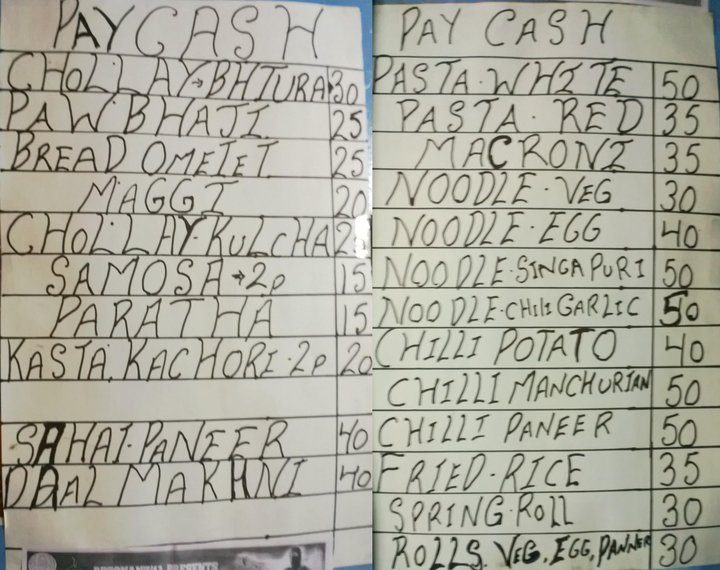 PAY CASH
CHOLLAY→BHTURA 30
PAW BHAJI 25
BREAD OMELET 25
MAGGI 20
CHOLLAY-KULCHA
SAMOSA→2p 15
PARATHA 15
KASTA KACHORI-2p 20
SAHAI-PANEER 40
DAAL MAKHNI 40
PRESENTS
PAY CASH
PASTA-WHITE 50
PASTA-RED 35
MACRONI 35
NOODLE-VEG 30
NOODLE-EGG 40
NOODLE-SINGAPURI 50
NOODLE-CHILI GARLIC 50
CHILLI POTATO 40
CHILLI MANCHURIAN 50
CHILLI PANEER 50
FRIED-RICE 35
SPRING-ROLL 30
ROLLS. VEG, EGG, PANNER 30